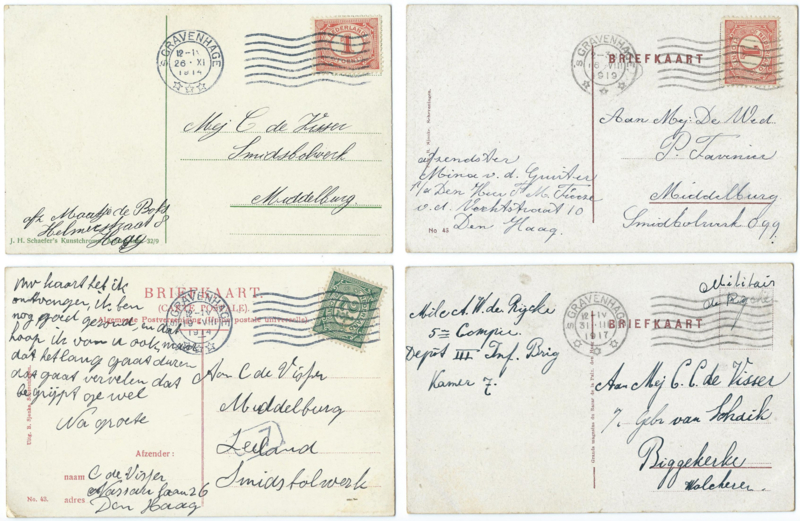 'S GRAVENHAGE
12-IV
26 · XI
1914
NEDERLAND
1
Mej C de Visser
Smidsbolwerk
Middelburg
afz Maatje de
Helmerstraat 8
Haag
J. H. Schaefer's Kunstchromo
32/9
'S GRAVENHAGE
VIII
1919
BRIEFKAART
1
Aan Mej: De Wed.
P. Tavenier
Middelburg
Smidbolwerk O 99
afzendster
Mina v. d. Gruiter
p/a Den Heer H.M.
v.d. Vechtstraat 10
Den Haag.
No 45
Uw kaart heb ik
ontvangen, ik ben
nog goed gezond en dat
hoop ik van u ook, maar
dat het lang gaat duren
dat gaat vervelen dat
begrijpt ge wel
Na groete
BRIEFKAART
(CARTE POSTALE).
Algemeene Postvereeniging (Union postale universelle)
'S GRAVENHAGE
VIII
1914
2½
Aan C de Visser
Middelburg
Zeeland
Smidstolwerk
Afzender:
naam C de Visser
adres Nassaulaan 26
Den Haag
No. 43.
Milc A. W. de Rijcke
5e Compie.
Depôt III - Inf. Brig
Kamer 7.
'S GRAVENHAGE
12-IV
31 · III
1917
BRIEFKAART
Militair
Aan Mej C. C. de Visser
Gebr van Schaik
Biggekerke
Walcheren